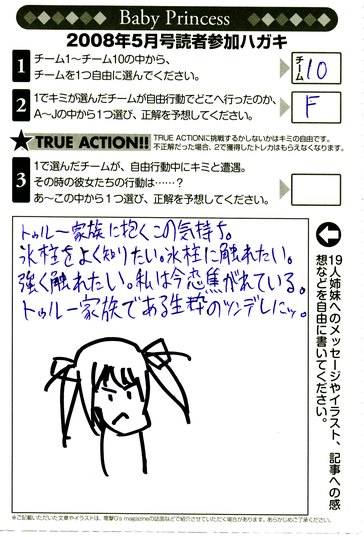 Baby Princess
2008年5月号読者参加ハガキ
1
チーム1〜チーム10の中から、
チームを1つ自由に選んでください。
チーム
10
2
1でキミが選んだチームが自由行動でどこへ行ったのか、
A〜Jの中から1つ選び、正解を予想してください。
F
★TRUE ACTION!!
TRUE ACTIONに挑戦するかしないかはキミの自由です。
不正解だった場合、2で獲得したトレカはもらえなくなります。
3
1で選んだチームが、自由行動中にキミと遭遇。
その時の彼女たちの行動は……？
あ〜この中から1つ選び、正解を予想してください。
トゥルー家族に抱くこの気持ち。
氷柱をよく知りたい。氷柱に触れたい。
強く触れたい。私は今恋焦がれている。
トゥルー家族である生粋のツンデレにッ。
19人姉妹へのメッセージやイラスト、記事への感
想などを自由に書いてください。
※ご記載いただいた文章やイラストは、電撃G's magazineの誌面などで紹介させていただく場合があります。あらかじめご了承ください。